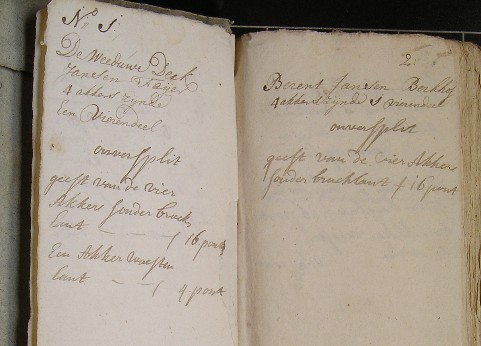 No 1:
De Weeduwe Derk
Jansen
4 akkers zynde
Een Vierendeel
onversplit
geeft van de vier
Akkers sonder bruck
lant - - - f 16 pont
Een Akker woesten
lant - - f 4 pont
2:
Berent Jansen Berkhof
4 akkers zynde 1 vierendeel
onversplit
geeft van de vier Akkers
sonder brucklant f 16 pont